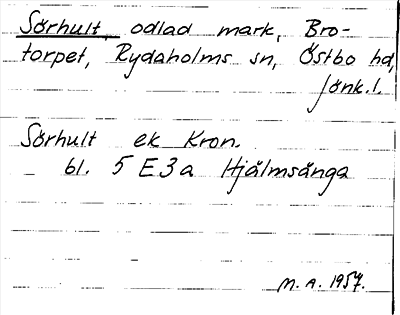 Sörhult, odlad mark, Bro-
torpet, Rydaholms sn, Östbo hd,
Jönk. l.
Sörhult ek Kron.
bl. 5 E 3 a Hjälmsänga
M. A. 1957.